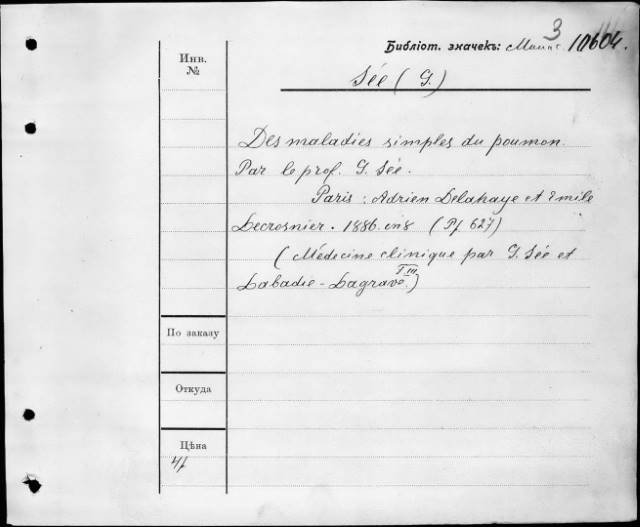 3
Библіот. значекъ: 10604.
Инв.
№
Sée (G.)
Des maladies simples du poumon.
Par le prof. G. Sée.
Paris: Adrien Delahaye et Emile
Lecrosnier. 1886. in 8 (Pf 627)
(Médecine clinique par G. Sée et
Labadie-Lagrave T III.)
По заказу
Откуда
Цѣна